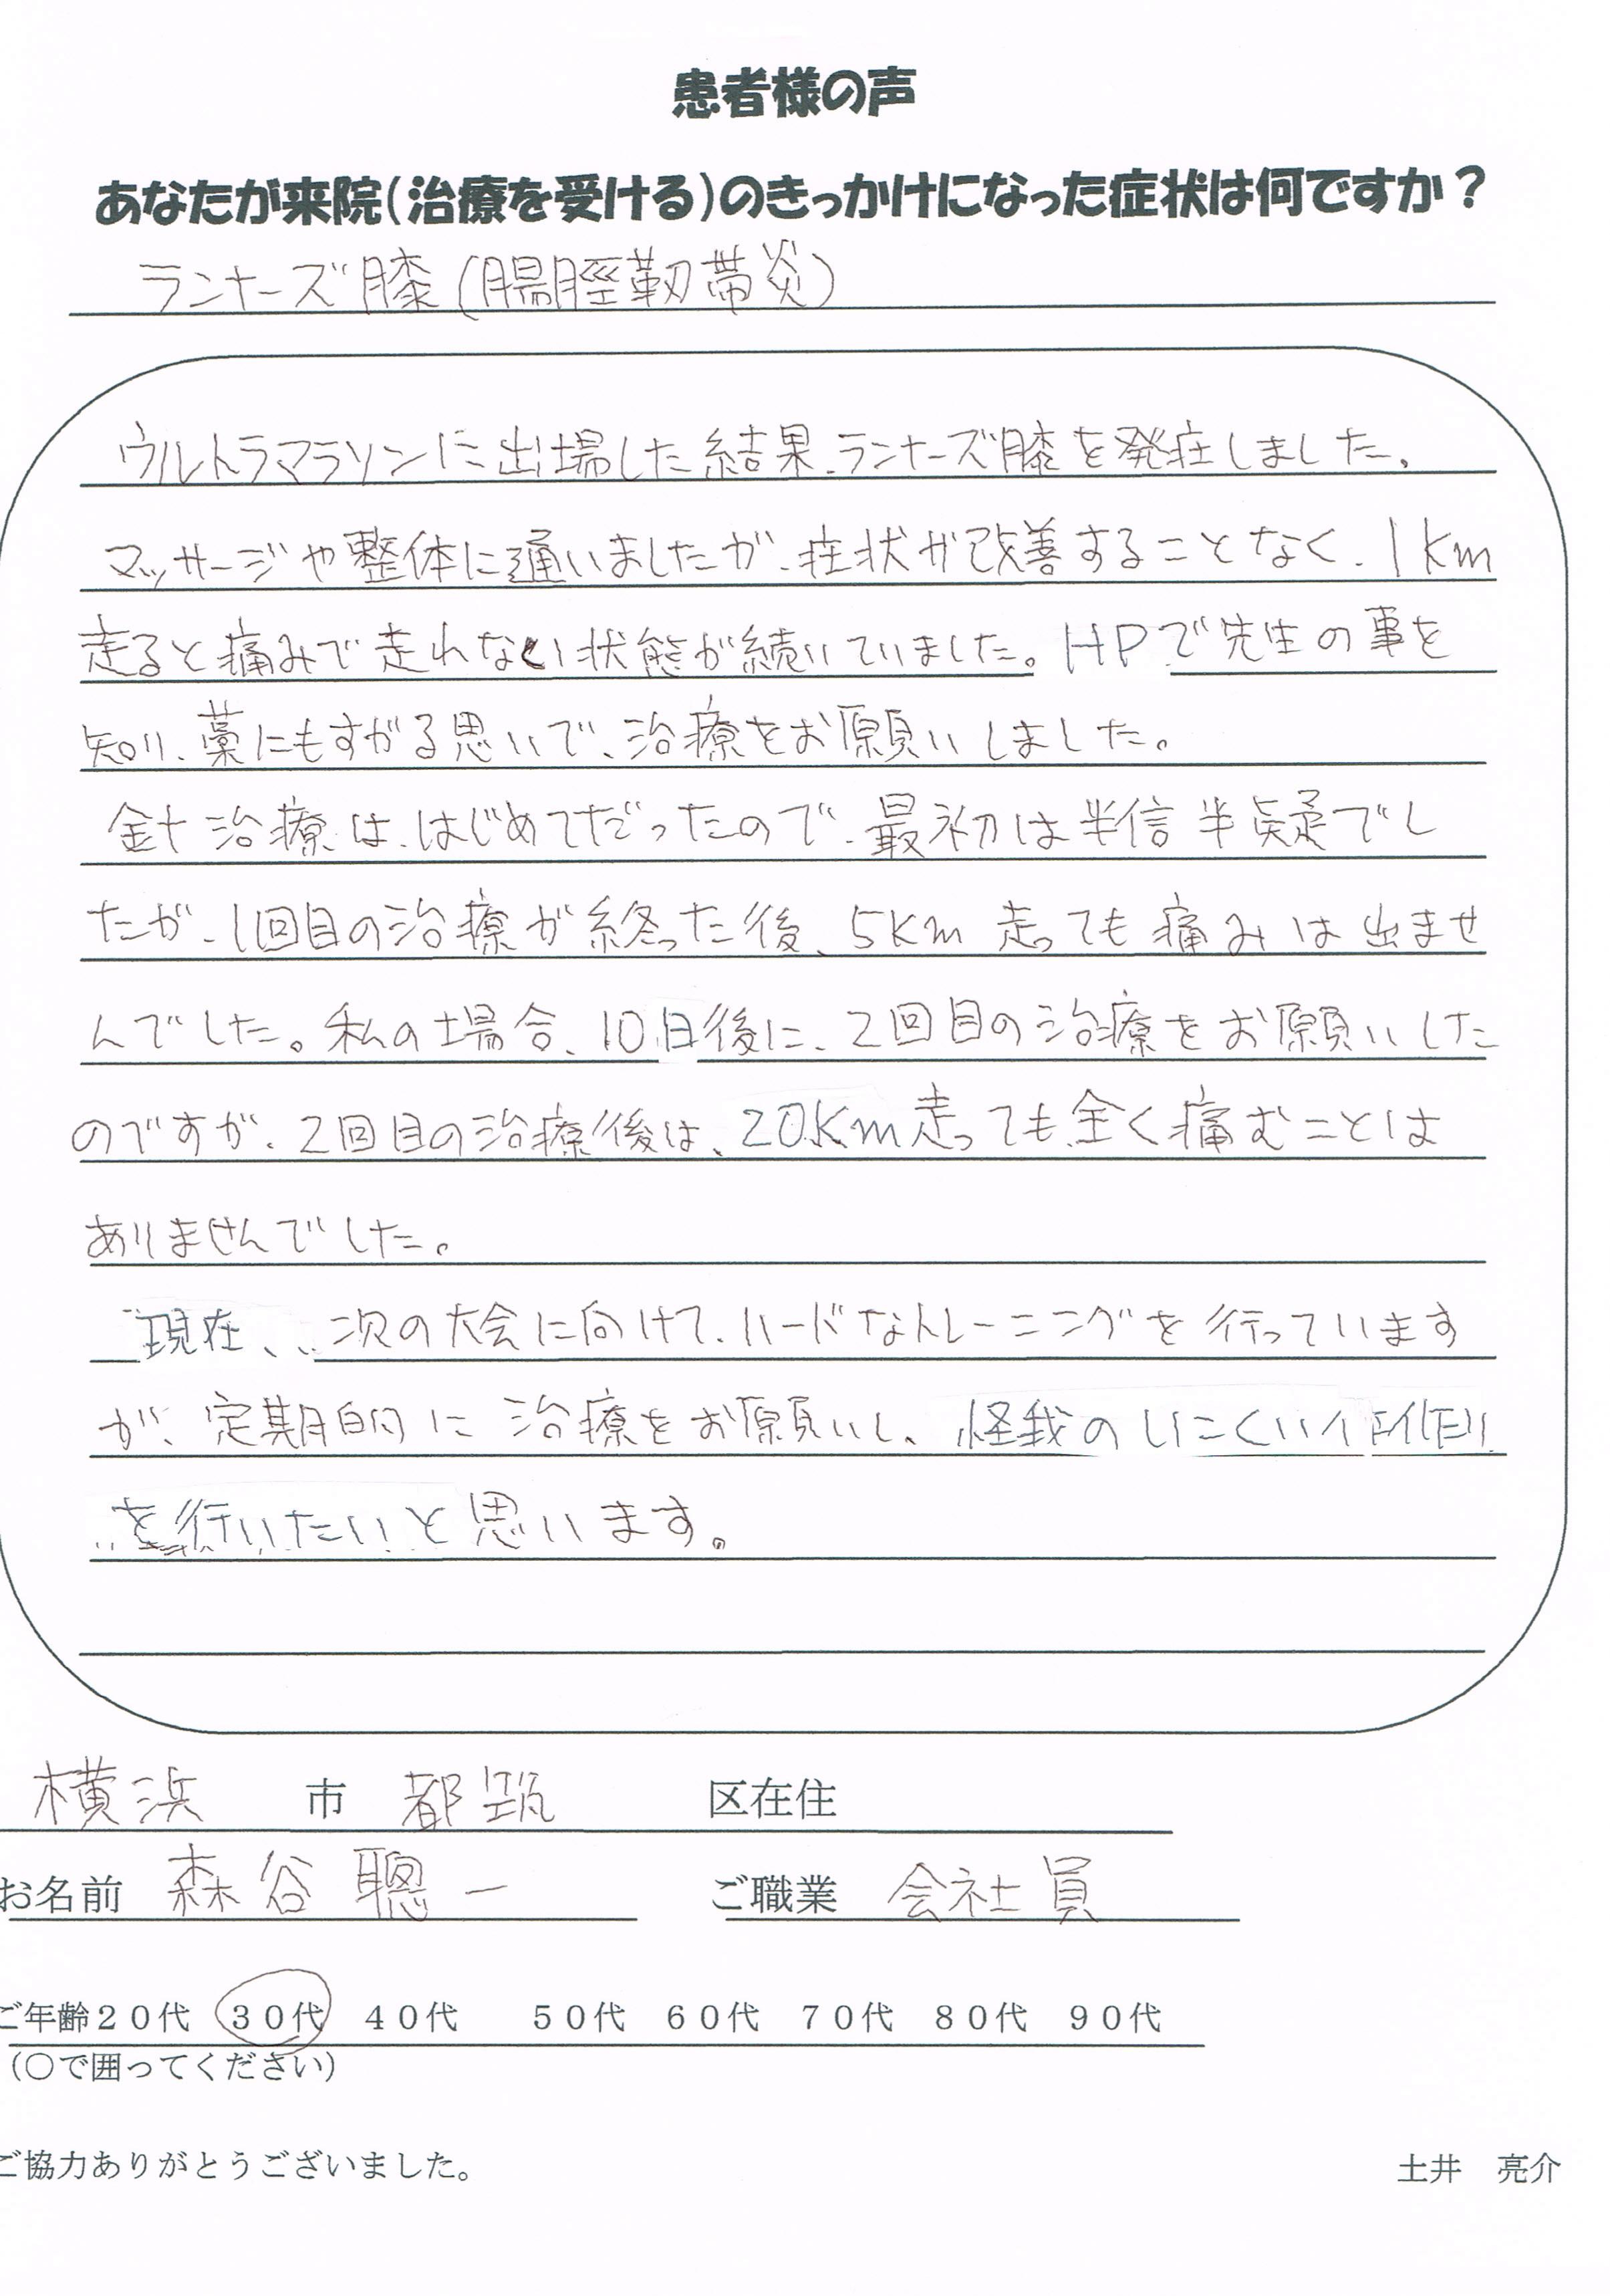 患者様の声
あなたが来院(治療を受ける)のきっかけになった症状は何ですか？
ランナーズ膝(腸脛靱帯炎)
ウルトラマラソンに出場した結果、ランナーズ膝を発症しました。
マッサージや整体に通いましたが、症状が改善することなく、1km
走ると痛みで走れない状態が続いていました。HPで先生の事を
知り、藁にもすがる思いで、治療をお願いしました。
針治療は、はじめてだったので、最初は半信半疑でし
たが、1回目の治療が終った後、5km走っても痛みは出ませ
んでした。私の場合、10日後に、2回目の治療をお願いした
のですが、2回目の治療後は、20km走っても全く痛むことは
ありませんでした。
現在、次の大会に向けて、ハードなトレーニングを行っています
が、定期的に治療をお願いし、怪我のしにくい体作り
を行いたいと思います。
横浜 市 都筑 区在住
お名前 森谷 聰一 ご職業 会社員
ご年齢２０代 ３０代 ４０代 ５０代 ６０代 ７０代 ８０代 ９０代
（○で囲ってください）
ご協力ありがとうございました。 土井 亮介